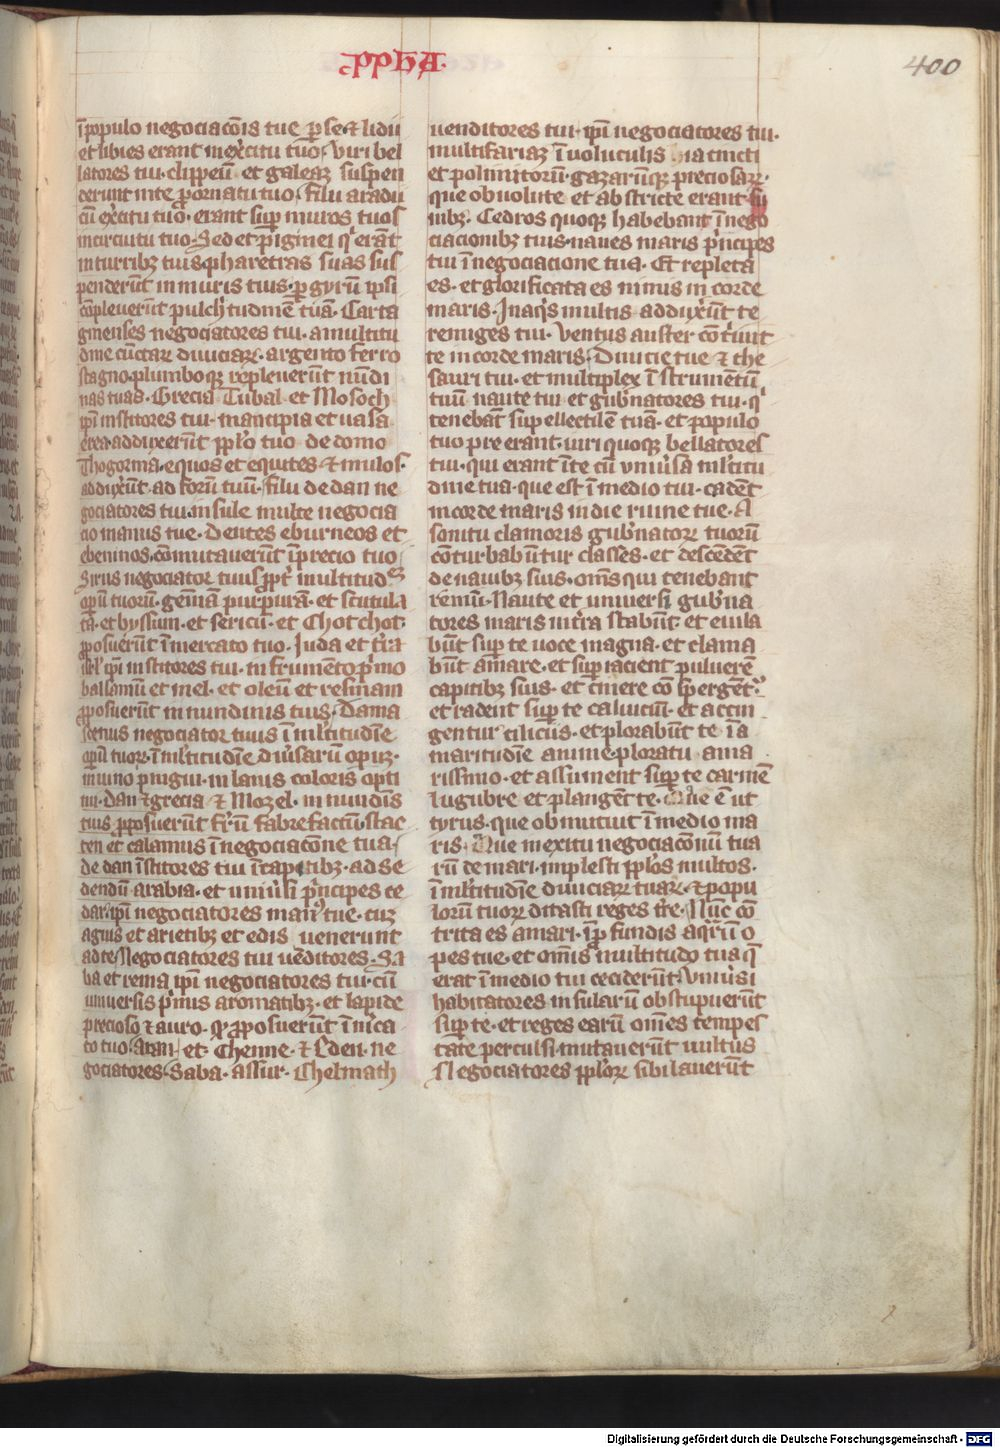 .ppħA.
400
ī populo negociacōis tue ꝑse ⁊ lidii
et libies erant in ex̾citu tuo. Viri bel
latores tui. clippeū et galeaꝫ suspen
derunt in te p̄ ornatu tuo. filii aradii
cū ex̾citu tuo. erant suꝑ muros tuos
in circuitu tuo. Sed et piginei qͥ erāt
in turribꝫ tuis pharetras suas sus
penderūt in muris tuis. ꝑ gyrū ipsi
cōpleuerūt pulch̾tudinē tuā. Carta
ginenses negociatores tui. a multitu
dine cūctaꝝ diuiciaꝝ. argento ferro
stagno plumboqꝫ repleuerūt nūdi
nas tuas. Grecia Tubal et Mosoch
ip̄i institores tui. mancipia et uasa
erea adduxerūt pp̄lo tuo de domo
Thogorma. equos et equites ⁊ mulos
adduxūt ad forū tuū. filii dedan ne
gociatores tui. insule multe negocia
cio manus tue. dentes eburneos et
ebeninos. cōmutauerūt ī precio tuo
Sirus negociator tuus ꝓpt̾ multitud
oꝑū tuorū. gemā purpurā. et scutula
ta. et byssum. et sericū. et Chotchot
ꝓposuerūt ī mercato tuo. Juda et t̾ra
isr̄l ip̄i institores tui. in frumento p̾mo
balsamū et mel. et oleū et resinam
ꝓposuerūt in nundinis tuis. Dama
scenus negociator tuus ī ml̄titudīe
oꝑū tuoꝝ. ī ml̄titudīe diu̾saꝝ opuꝫ.
in uino pīngui. in lanis coloris opti
mi. Dan ⁊ grecia ⁊ Mozel. in nundīs
tuis ꝓposuerūt fr̄ū fabrefactū. stac
ten et calamus ī negociacōne tua.
dedan īstitores tui ī tapetibꝫ ad se
dendū. arabia. et uniu̾si p̾ncipes ce
dar. ip̄i negociatores man⁹ tue. cuꝫ
agnis et arietibꝫ et edis uenerunt
ad te. Negociatores tui uēditores. Sa
ba et rema ip̄i negociatores tui. cū
uniuersis p̾mis aromatibꝫ. et lapide
precioso ⁊ auro. qͦ ꝓposuerūt ī m̾ca
to tuo. aran. et Chenne. ⁊ Eden. ne
gociatores. Saba. assur. Chelmath
uenditores tui. ip̄i negociatores tui.
multifariaꝫ ī uoluculis iacincti
et polimitorū. gazarūqꝫ preciosaꝝ.
que obuolute et abstricte erant fu
nibꝫ. Cedros quoqꝫ habebant ī nego
ciacionibꝫ tuis. naues maris p̾ncipes
tui ī negociacione tua. Et repleta
es. et glorificata es nimis in corde
maris. In aqͥs multis adduxūt te
remiges tui. Ventus auster cōtriuit
te in corde maris. Diuicie tue ⁊ the
sauri tui. et multiplex īstrumentū
tuū naute tui et gub̾natores tui. qͥ
tenebāt supellectilē tuā. et populo
tuo preerant. uiri quoqꝫ bellatores
tui. qui erant ī te cū vniu̾sa ml̄titu
dine tua. que est ī medio tui. cadēt
in corde maris in die ruine tue. A
sonitu clamoris gub̾natoꝝ tuorū
cōturbabūtur classes. et descendēt
de nauibꝫ suis. om̄s qui tenebant
remū. Naute et universi gub̾na
tores maris in t̾ra stabūt. et eiula
būt suꝑ te uoce magna. et clama
būt amare. et suꝑiacient puluerē
capitibꝫ suis. et cinere cōspergēt̾.
et radent suꝑ te caluiciū. et accin
gentur ciliciis. et plorabūt te ī a
maritudīe anime. ploratu ama
rissimo. et assument suꝑ te carmē
lugubre et plangēt te. Que ē ut
tyrus. que obmutuit ī medio ma
ris. Que in exitu negociacōnū tua
rū de mari. implesti pp̄los multos.
ī ml̄titudīe diuiciaꝝ tuaꝝ. ⁊ popu
lorū tuoꝝ ditasti reges t̾re. Nūc cō
trita es a mari. ī ꝓfundis aqͣrū o
pes tue. et omnis multitudo tua q̄
erat ī medio tui ceciderūt. Vniu̾si
habitatores insularū obstupuerūt
suꝑ te. et reges earū om̄es tempes
tate perculsi. mutauerūt uultus
Negociatores pp̄loꝝ sibilauerūt
Digitalisierung gefördert durch die Deutsche Forschungsgemeinschaft - DFG